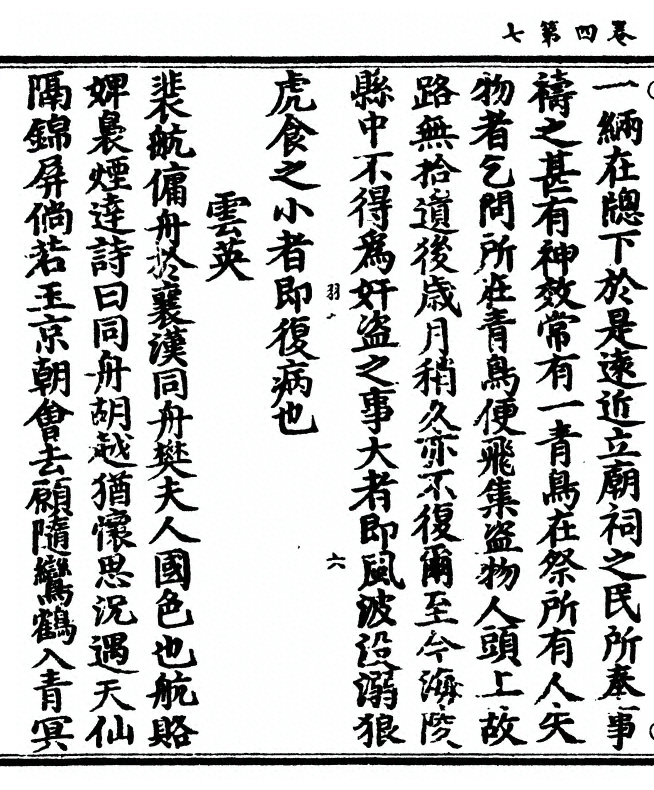 卷四第七
一緉在牎下於是遠近立廟祠之民所奉事
禱之甚有神效常有一青鳥在祭所有人失
物者乞問所在青鳥便飛集盜物人頭上故
路無拾遺後歲月稍久亦不復爾至今海陵
縣中不得爲奸盜之事大者即風波没溺狼
羽 六
虎食之小者即復病也
雲英
裴航傭舟於襄漢同舟樊夫人國色也航賂
婢裊煙達詩曰同舟胡越猶懷思况遇天仙
隔錦屏倘若玉京朝會去願隨鸞鶴入青冥